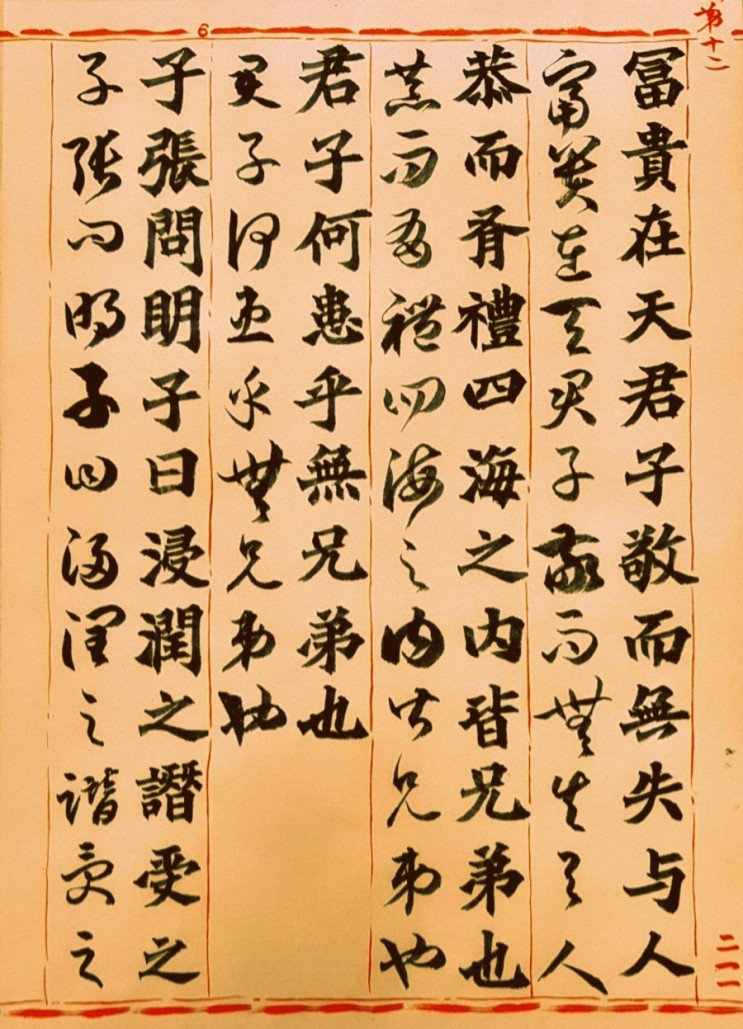 第十二
冨貴在天君子敬而無失与人
富貴在天君子敬而無失与人
恭而有禮四海之内皆兄弟也
恭而有禮四海之内皆兄弟也
君子何患乎無兄弟也
君子何患乎無兄弟也
子張問明子曰浸潤之譖受之
子張問明子曰浸潤之譖受之
6
二一一